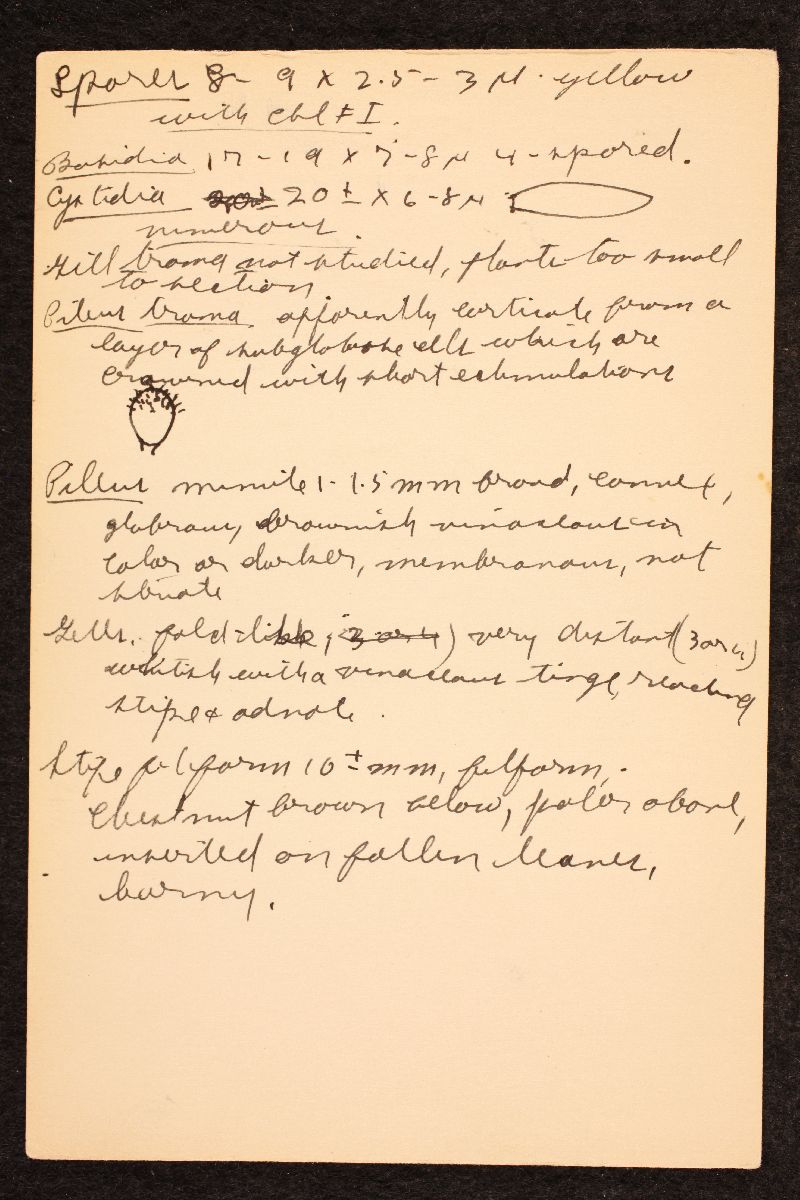 Spores 8-9 x 2.5-3 µ. yellow
with chl + I.
Basidia 17-19 x 7-8 µ 4-spored.
Cystidia 20± x 6-8 µ
numerous.
Gill trama not studied, plants too small
to section
Pileus trama apparently corticate from a
layer of subglobose cells which are
crowned with short echinulations
Pileus minute 1-1.5 mm broad, convex,
glabrous, brownish vinaceous in
color or darker, membranous, not
striate
Gills. fold-like, 3 or 4) very distant (3 or 4)
whitish with a vinaceous tinge, reaching
stipe & adnate.
Stipe filiform 10± mm, filform,.
Chestnut brown below, paler above,
inserted on fallen leaves,
horny.